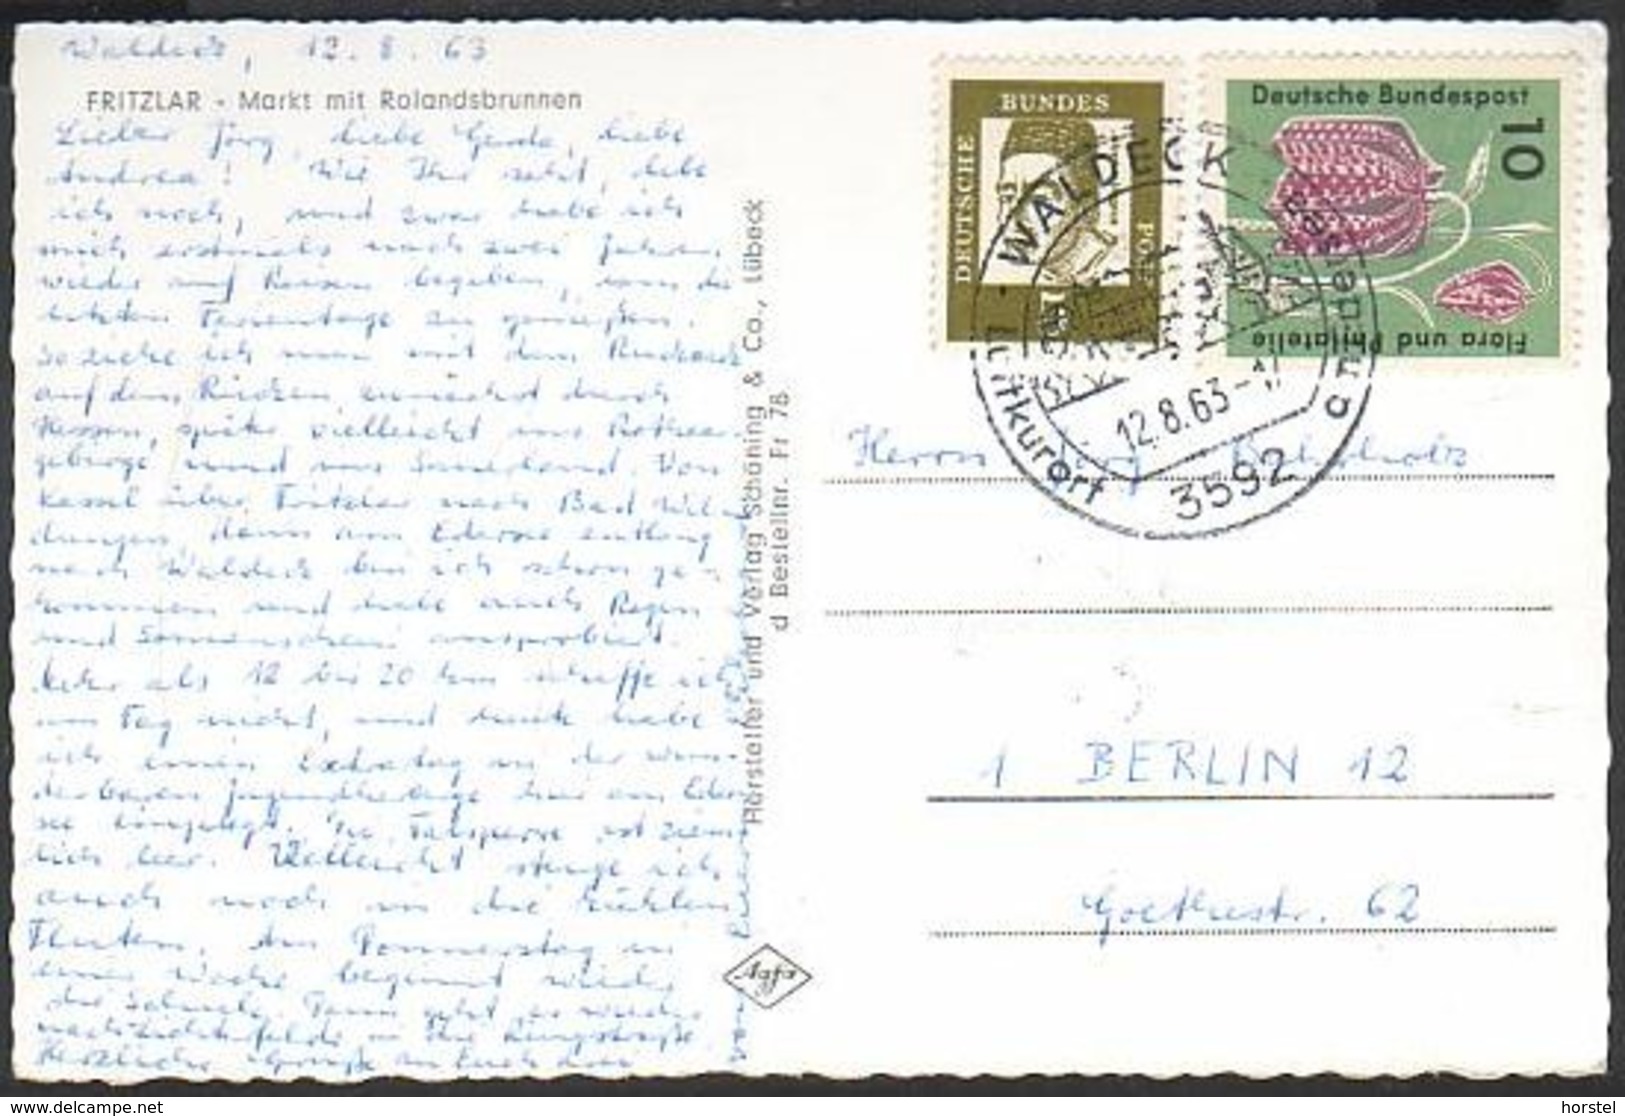 Waldeck, 12.8.63
FRITZLAR - Markt mit Rolandsbrunnen
Lieber Jörg, liebe Gerda, liebe
Andrea! Wie Ihr seht, lebe
ich noch, und zwar habe ich
mich erstmals nach zwei Jahren
wieder auf Reisen begeben, um die
letzten Ferientage zu genießen.
So ziehe ich nun mit dem Rucksack
auf dem Rücken zunächst durch
Hessen, später vielleicht ins Rothaar-
gebirge und ins Sauerland. Von
Kassel über Fritzlar nach Bad Wil-
dungen, dann am Edersee entlang
nach Waldeck bin ich schon ge-
kommen und habe auch Regen
und Sonnenschein ausprobiert.
Mehr als 12 bis 20 km schaffe ich
am Tag nicht, und heute habe
ich einen Extratag in der wun-
derbaren Jugendherberge hier am Eder-
see eingelegt. Die Talsperre ist ziem-
lich leer. Vielleicht steige ich
auch noch in die kühlen
Fluten. Am Donnerstag in
einer Woche beginnt wieder
die Schule. Dann geht es wieder
nach Lichterfelde in die Ringstraße.
Herzliche Grüße an Euch drei
Hersteller und Verlag Schöning & Co., Lübeck
d Bestellnr. Fr 78
Agfa
DEUTSCHE BUNDES POST
15
Deutsche Bundespost
10
Flora und Philatelie
WALDECK
Luftkurort
am Edersee
12.8.63-17
3592
Herrn Jörg
1 BERLIN 12
Goethestr. 62
horstel